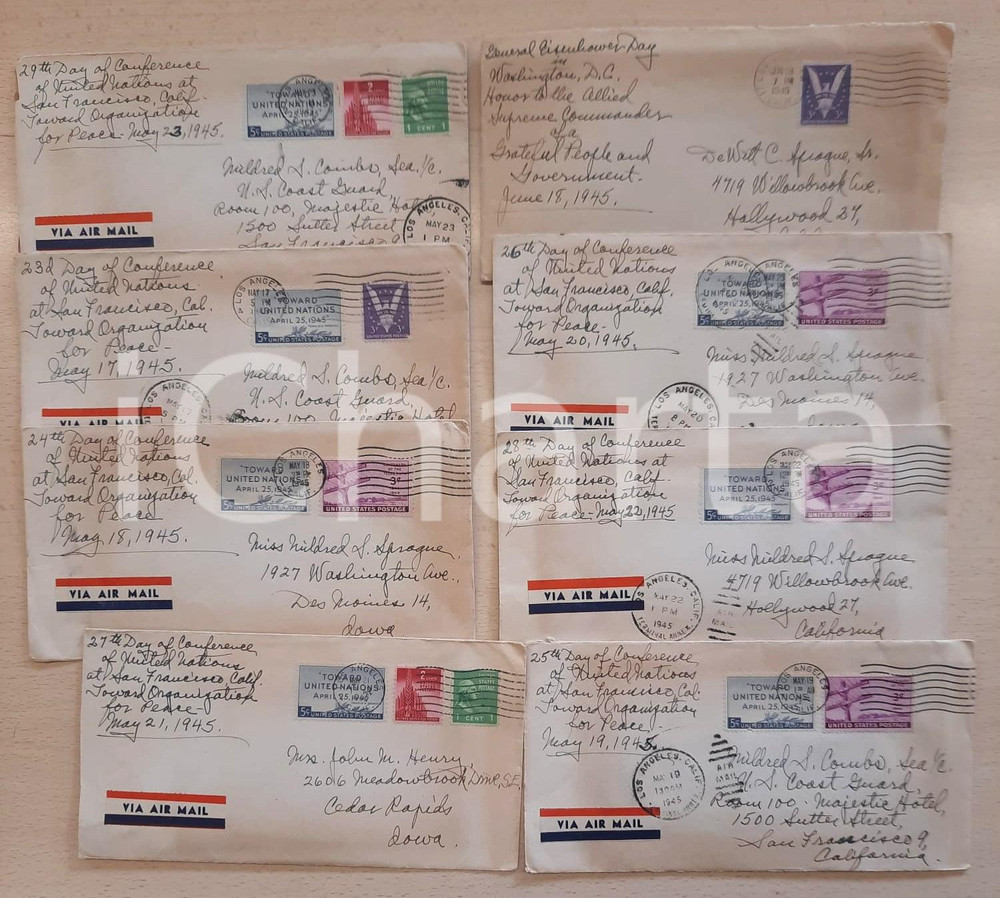 29th Day of Conference
of United Nations at
San Francisco, Calif.
Toward Organization
for Peace - May 23, 1945.
TOWARD
UNITED NATIONS
APRIL 25, 1945
5¢ UNITED STATES POSTAGE
2
1 CENT 1
Mildred S. Combs, Sea. 1/c.
U. S. Coast Guard,
Room 100, Majestic Hotel
1500 Sutter Street
San Francisco 9
VIA AIR MAIL
LOS ANGELES, CALIF.
MAY 23
1 PM
General Eisenhower Day
in
Washington, D.C.
Honor to the Allied
Supreme Commander
of a
Grateful People and
Government.
June 18, 1945.
1945
3¢ 3¢
DeWitt C. Sprague, Sr.
4719 Willowbrook Ave.
Hollywood 27,
23d Day of Conference
of United Nations
at San Francisco, Cal.
Toward Organization
for Peace -
May 17, 1945.
LOS ANGELES
MAY 17
5 PM
TOWARD
UNITED NATIONS
APRIL 25, 1945
5¢ UNITED STATES POSTAGE
3¢ 3¢
Mildred S. Combs, Sea 1/c.
U. S. Coast Guard,
Room 100 Majestic Hotel
LOS ANGELES, CA
MAY 17
26th Day of Conference
of United Nations
at San Francisco, Calif.
Toward Organization
for Peace -
May 20, 1945.
LOS ANGELES
TOWARD
UNITED NATIONS
APRIL 25, 1945
5¢ UNITED STATES POSTAGE
3¢
UNITED STATES POSTAGE
Miss Mildred S. Sprague
1927 Washington Ave.
Des Moines 14,
Iowa
VIA AIR MAIL
LOS ANGELES, C
MAY 20
8 PM
24th Day of Conference
of United Nations
at San Francisco, Cal.
Toward Organization
for Peace
May 18, 1945.
ANGELES
MAY 18
1945
TOWARD
UNITED NATIONS
APRIL 25, 1945
5¢ UNITED STATES POSTAGE
3¢
UNITED STATES POSTAGE
Miss Mildred S. Sprague,
1927 Washington Ave.,
Des Moines 14,
Iowa
VIA AIR MAIL
28th Day of Conference
of United Nations at
San Francisco, Calif.
Toward Organization
for Peace - May 22, 1945
ANGELES
MAY 22
TOWARD
UNITED NATIONS
APRIL 25, 1945
5¢ UNITED STATES POSTAGE
UNITED STATES POSTAGE
Miss Mildred S. Sprague
4719 Willowbrook Ave.
Hollywood 27,
California
VIA AIR MAIL
LOS ANGELES, CALIF.
MAY 22
1 PM
1945
TERMINAL ANNEX
AIR
MAIL
27th Day of Conference
of United Nations
at San Francisco, Calif.
Toward Organization
for Peace -
May 21, 1945.
TOWARD
UNITED NATIONS
APRIL 25, 1945
5¢ UNITED STATES POSTAGE
2
1 CENT 1
Mrs. John M. Henry,
2606 Meadowbrook Drive, S.E.,
Cedar Rapids
Iowa.
VIA AIR MAIL
25th Day of Conference
of United Nations
at San Francisco, Cal
Toward Organization
for Peace -
May 19, 1945.
LOS ANGELES
MAY 19
TOWARD
UNITED NATIONS
APRIL 25, 1945
5¢ UNITED STATES POSTAGE
3¢
UNITED STATES POSTAGE
Mildred S. Combs, Sea. 1/c
U. S. Coast Guard,
Room 100 - Majestic Hotel,
1500 Sutter Street,
San Francisco 9,
California.
VIA AIR MAIL
LOS ANGELES, CALIF.
MAY 19
1945
AIR
MAIL
iCharta